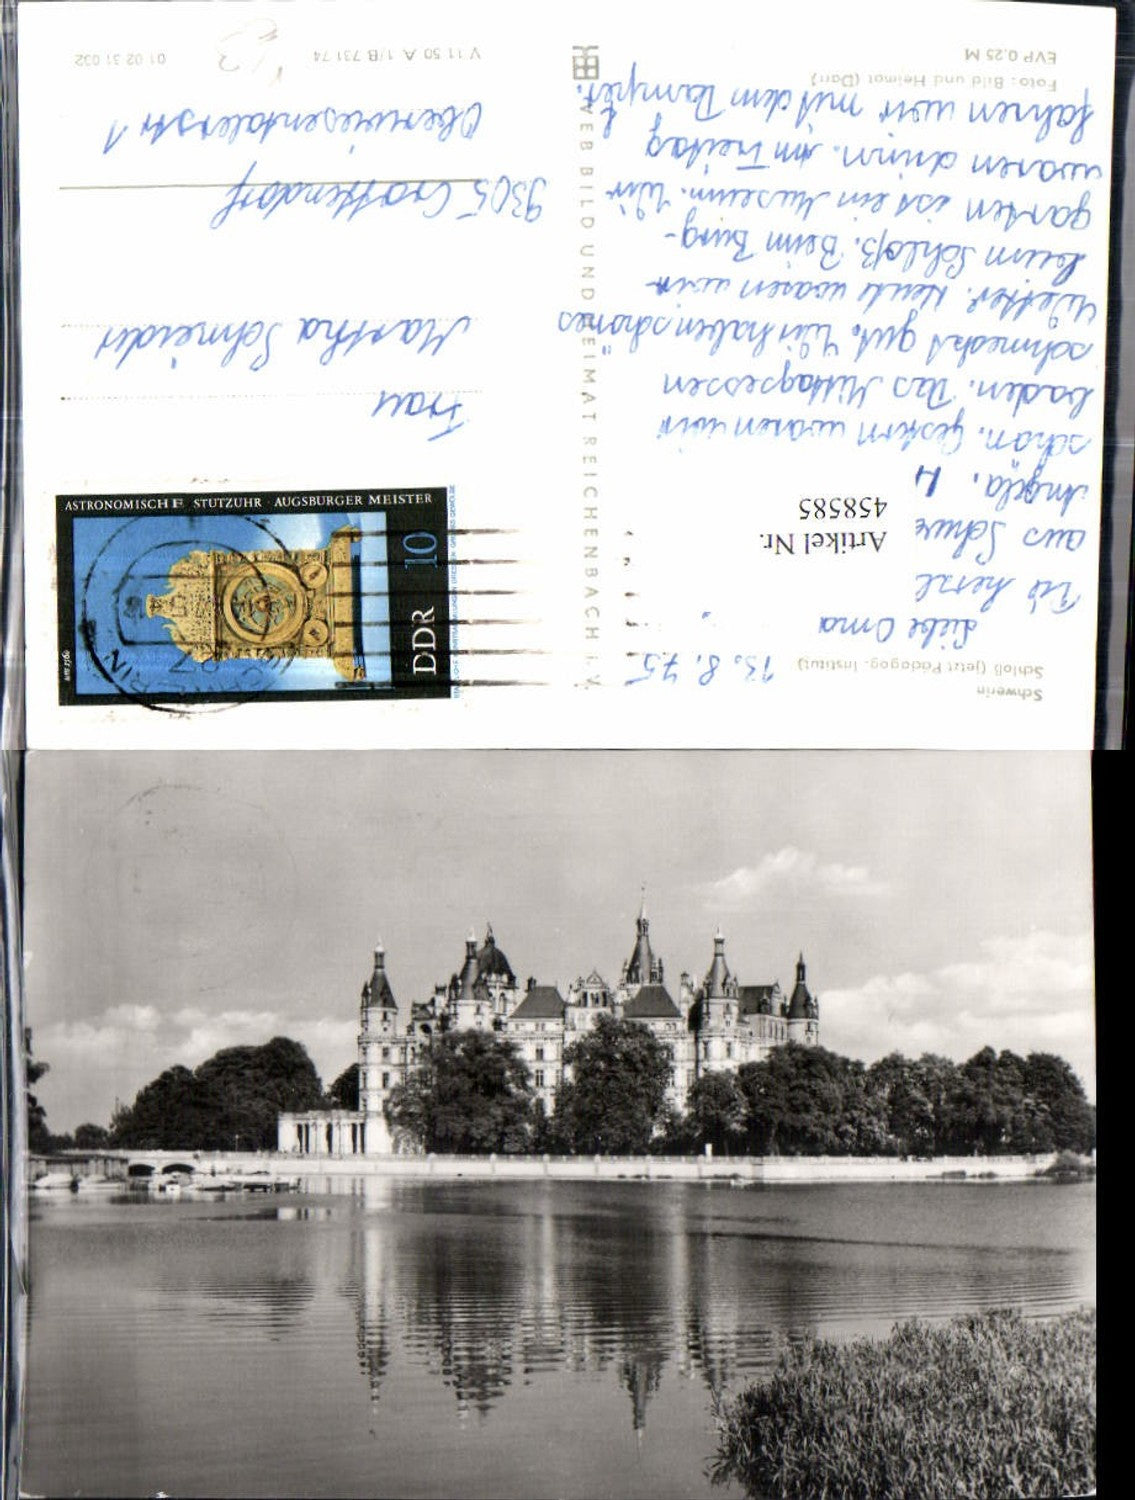 Schwerin
Schloß (jetzt Pädagog. Institut)
13. 8. 75
Liebe Oma
aus
Angela.
schon. Gestern waren wir
baden. Das Mittagessen
schmeckt gut. Wir haben schönes
Wetter. Heute waren wir
beim Schloß. Beim Burg-
garten ist ein Museum. Wir
waren drinn. Am Freitag
fahren wir mit dem Dampfer.
Foto: Bild und Heimat (Darr)
EVP 0,25 M
Artikel Nr.
458585
VEB BILD UND HEIMAT REICHENBACH i. V.
Frau
Martha Schneider
9305 Crottendorf
Oberwiesentalerstr 1
V 11 50 A 1/B 731 74
01 02 31 032
ASTRONOMISCHE STUTZUHR · AUGSBURGER MEISTER
um 1560
DDR 10
SCHWERIN